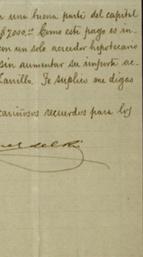 a una buena parte del capital
$7000.00 Como este pago es in-
em un solo acreedor hipotecario
sin aumentar su importe ac-
Te suplico me digas
cariñosos recuerdos para los